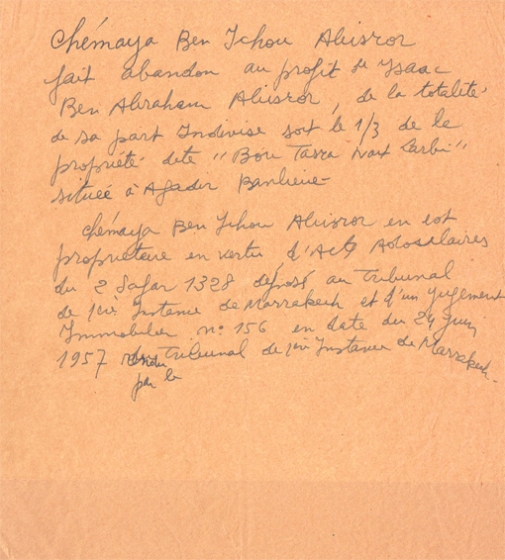 Chémaya Ben Ichou Abisror
fait abandon au profit de Ysaac
Ben Abraham Abisror, de la totalité
de sa part Indivise soit le 1/3 de la
propriété dite "Bou Tasra
située à Agadir Banlieue-
Chémaya Ben Ichou Abisror en est
propriétaire en vertu d'Acts
du 2 Safar 1328 déposé au tribunal
de 1ère Instance de Marrakech et d'un jugement
Immobilier n° 156 en date du 24 Juin
1957 rendu tribunal de 1ère Instance de Marrakech.
par le